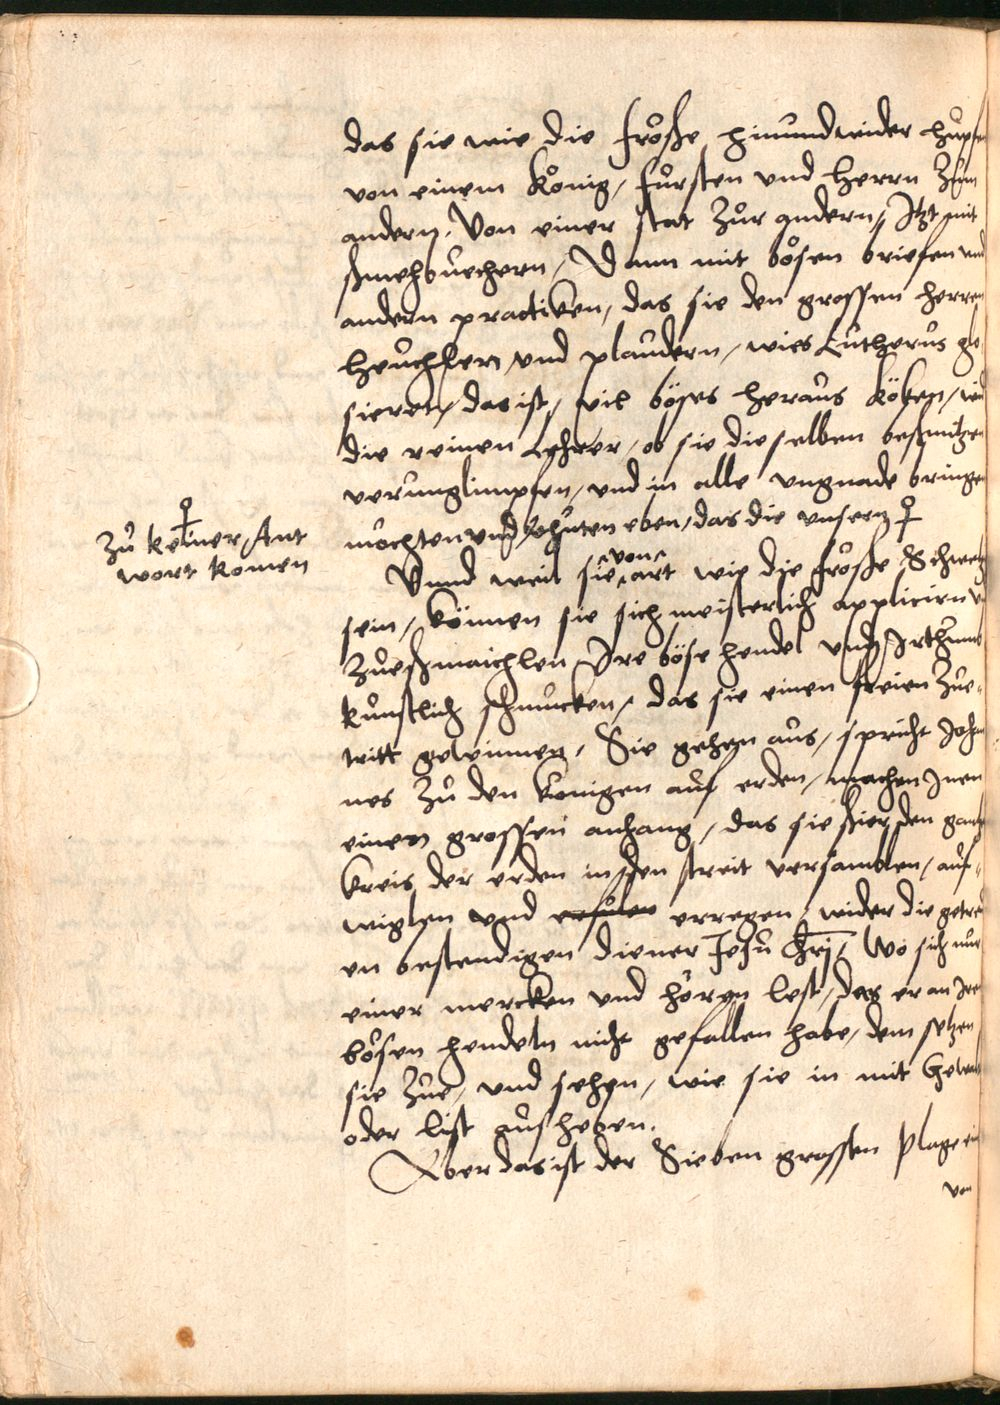 das sie wie die frösche hinundwider hupfen
von einem König, fürsten und herrn zum
andern, Von einer stat zur andern, Itzt mit
schmehbuechern, Dann mit bösen briefen und
andern practiken, das sie den grossen herren
heuchlen, und plaudern, wies Lutherus glo-
sieret, das ist, vil böses heraus köken, wid
die reinen Lehrer, ob sie dieselben beschmitzen
verunglimpfen, und in alle ungnade bringen
möchten und hüten eben, das die unsern
Zu keiner Ant
wort komen
Unnd weil sie von art wie die frösche Schwetz
sein, können sie sich meisterlich applicirn u
zueschmaichlen Ire böse hendel und Irthumb
kunstlich schmucken, das sie einen freien zue-
tritt gewinnen, Sie gehen aus, spricht Johan
nes zu den Konigen auf erden, machen Inen
einen grossen anhang, das sie schier den gantz
kreis der erden in den streit versamblen, auf-
wiglen und erregen, wider die getreu
en bestendigen diener Jesu Chri, Wo sich nur
einer mercken und hören lest, das er an Ire
bösen hendeln nicht gefallen habe, dem setzen
sie zue, und sehen, wie sie in mit Gewalt
oder list aufheben.
Aber das ist der Sieben grossen Plage ein
von